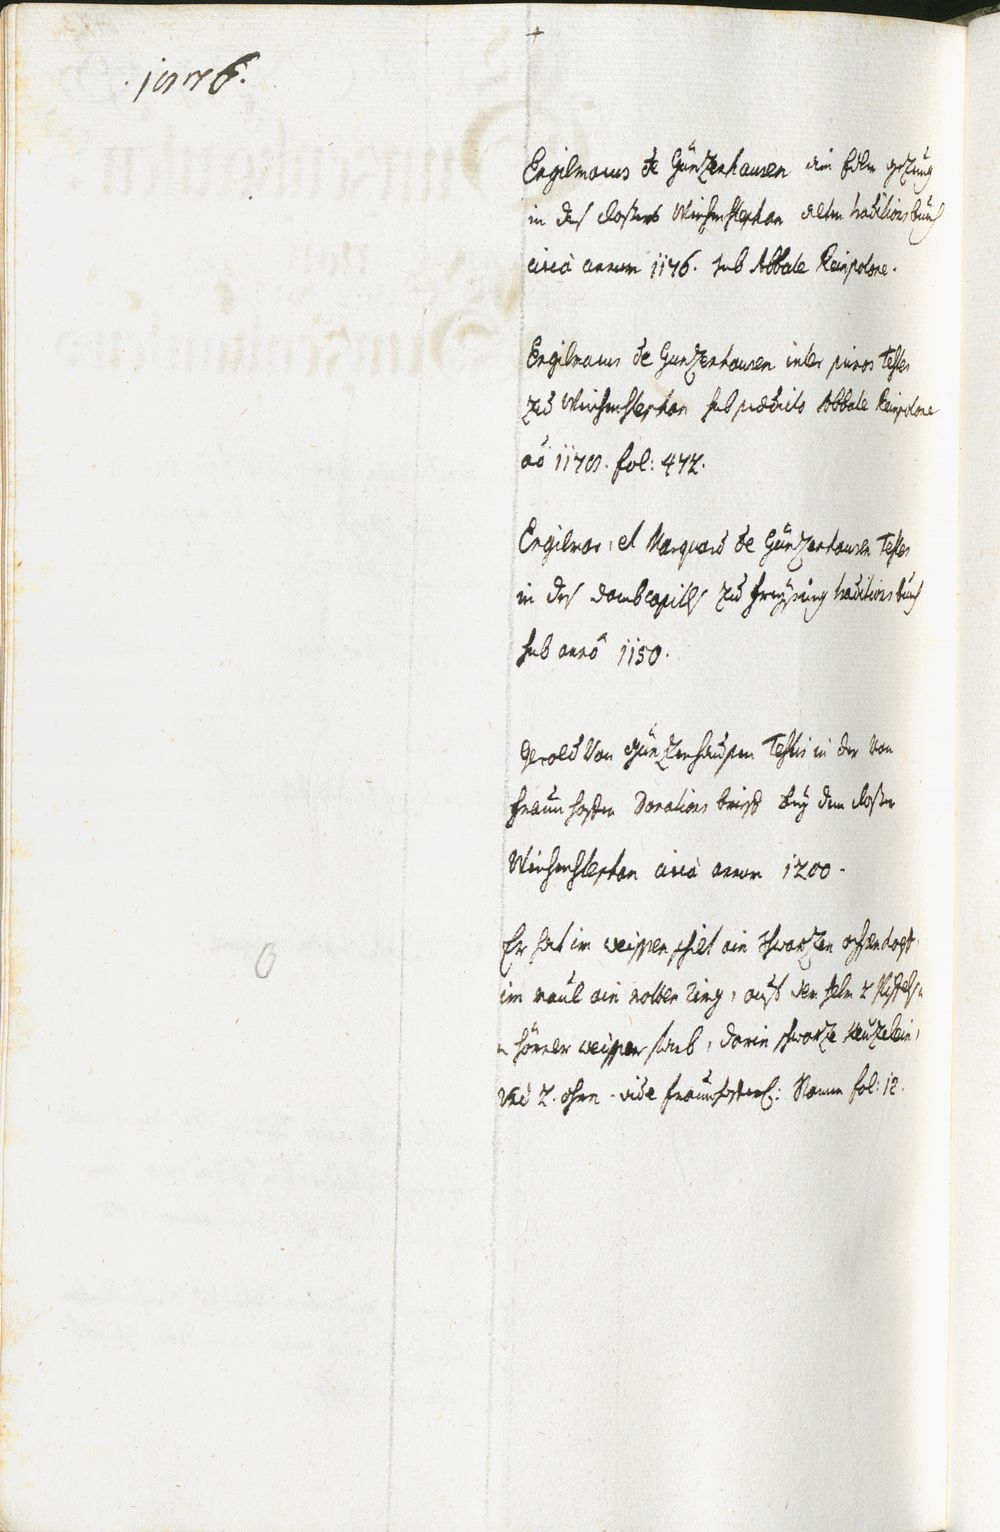 1076.
Engilmarus de Günzenhausen ein Edler gezeug
in des Closters Weichenstephan alten traditions buch
circà annum 1176. sub Abbate Reinpolone.
Engilmarus de Gunzenhausen inter testes
zu Weichenstephan sub Abbate Reinpolone
aō fol: 472.
Engilmar, et Marquard de Günzenhausen Testes
in des dombcapitls zu Freysing traditions buch
sub annō 1150.
Gerold Von Günzenhausen Testis in der von
Fraunhofen Donations brief bey dem closter
Weichenstephan circà annum 1200.
Er hat im weissen schilt ein schwarzen ochsenkopf,
im maul ein rotten ring, auf dem helm 2
hörner weisser farb, darin schwarze
Und 2. ohrn. vide Fraunhofen: Stamm fol: 12.